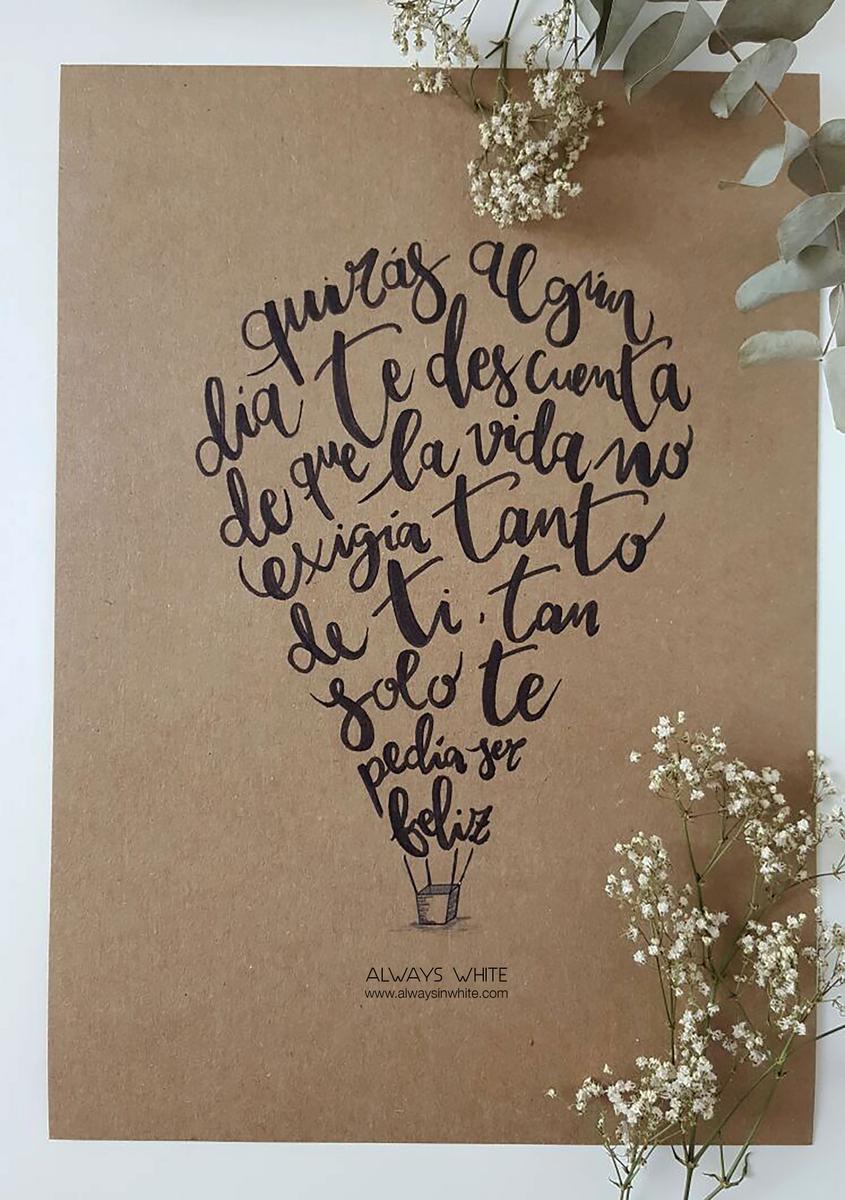 quizás algún
día te des cuenta
de que la vida no
exigía tanto
de ti, tan
solo te
pedía ser
feliz
ALWAYS WHITE
www.alwaysinwhite.com